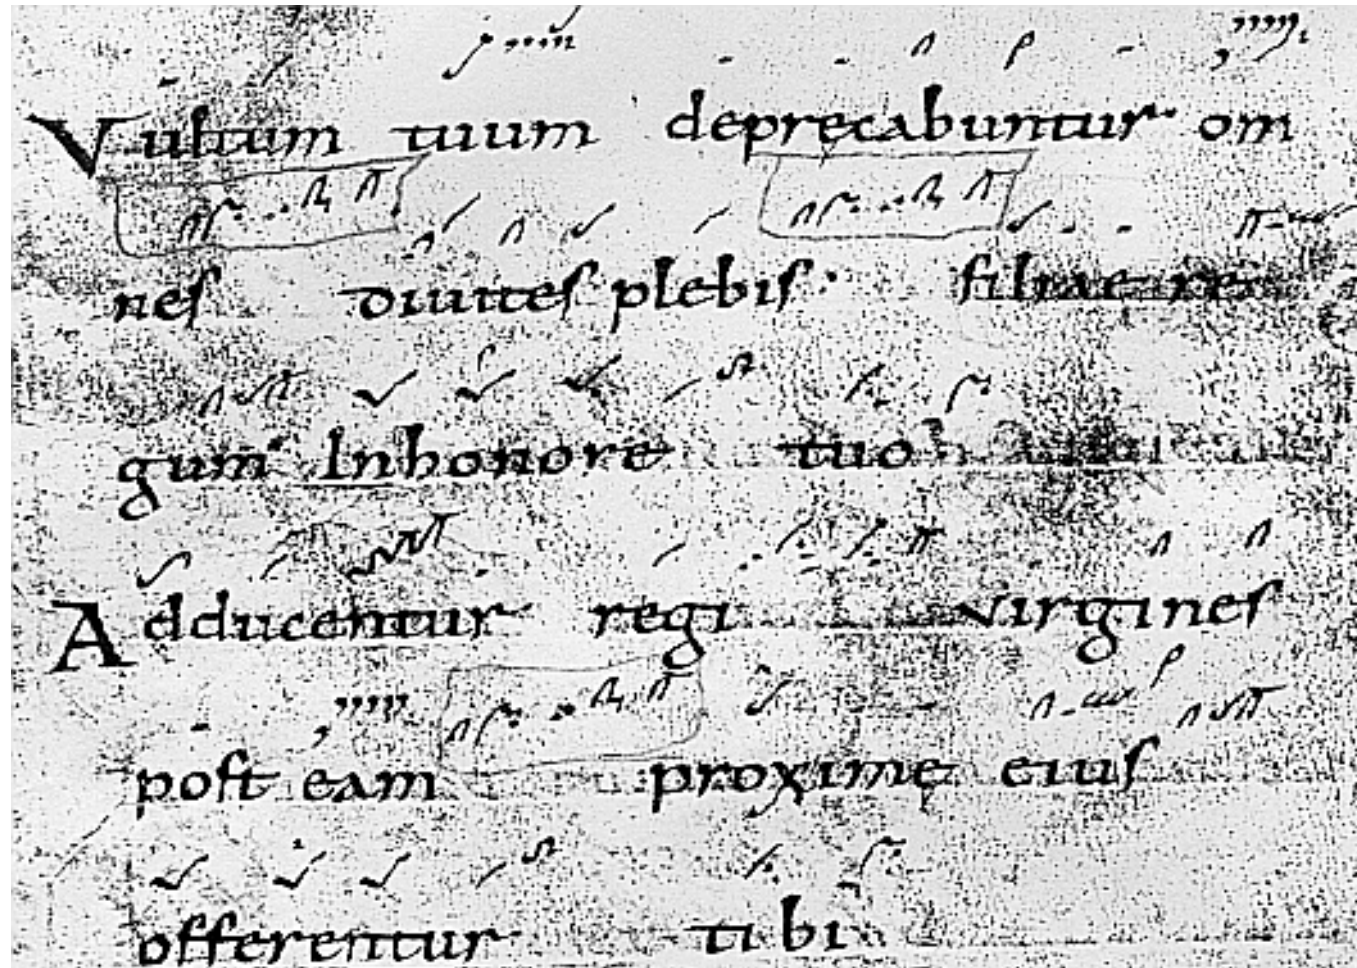 Vultum tuum deprecabuntur om
nes diuites plebis· filiae re
gum Inhonore tuo
Adducentur regi virgines
post eam proxime eius
offerentur tibi